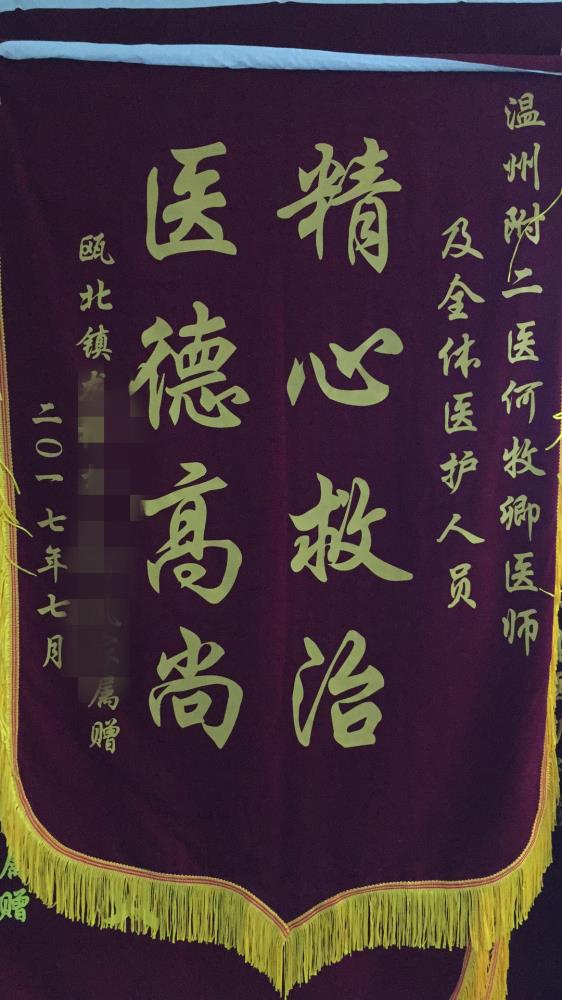 温州附二医何牧卿医师
及全体医护人员
精心救治
医德高尚
瓯北镇 属赠
二〇一七年七月
属赠